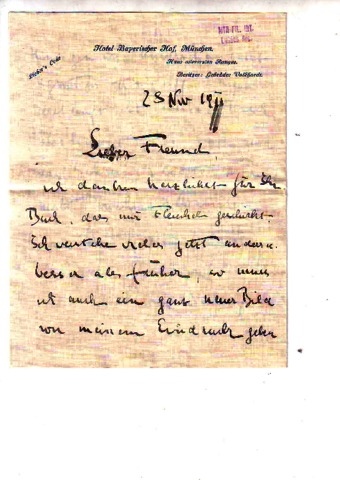 Hotel Bayerischer Hof, München.
Haus allerersten Ranges.
Besitzer: Gebrüder Volkhardt.
Lieber's Code
23 Nov 1911
Lieber Freund,
ich danke herzlichst für Ihr
Buch, das mir Fleischel geschickt.
Ich verstehe vieles jetzt anders u.
besser als früher, so muss
ich auch ein ganz neues Bild
von meinem Eindruck geben